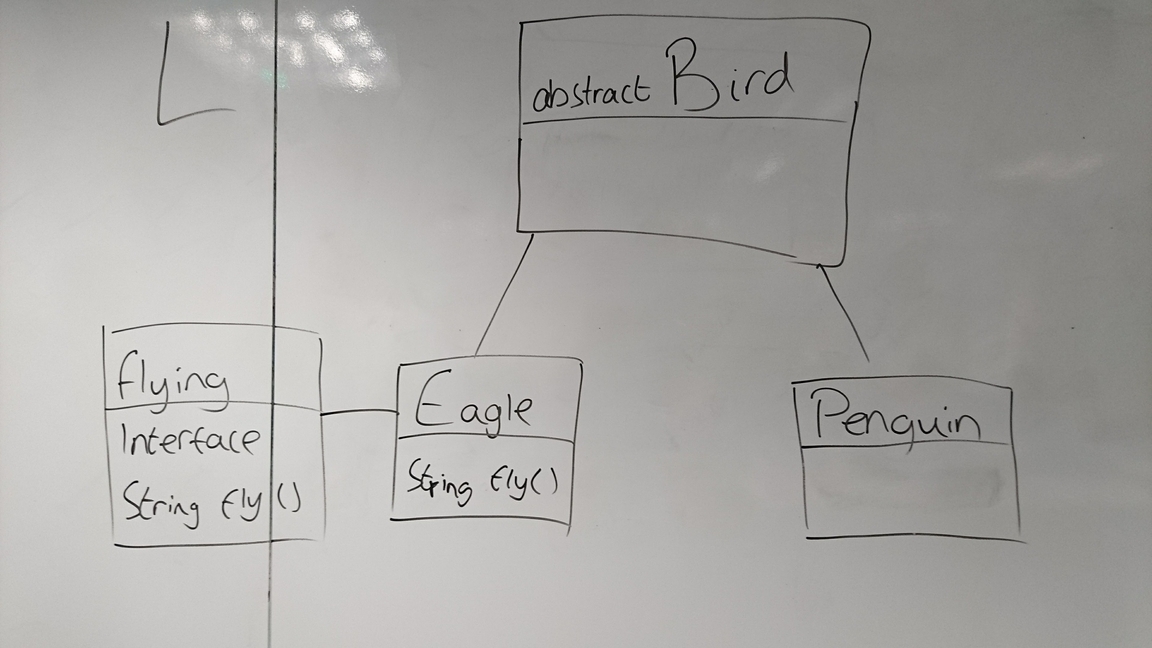 L
abstract Bird
flying
Interface
String fly()
Eagle
String fly()
Penguin